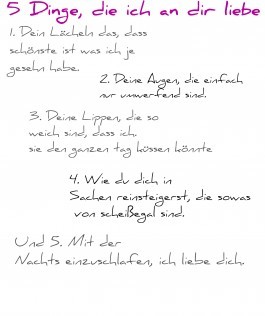 5 Dinge, die ich an dir liebe
1. Dein Lächeln das, dass
schönste ist was ich je
gesehn habe.
2. Deine Augen, die einfach
nur umwerfend sind.
3. Deine Lippen, die so
weich sind, dass ich.
sie den ganzen tag küssen könnte
4. Wie du dich in
Sachen reinsteigerst, die sowas
von scheißegal sind.
Und 5. Mit der
Nachts einzuschlafen, ich liebe dich.